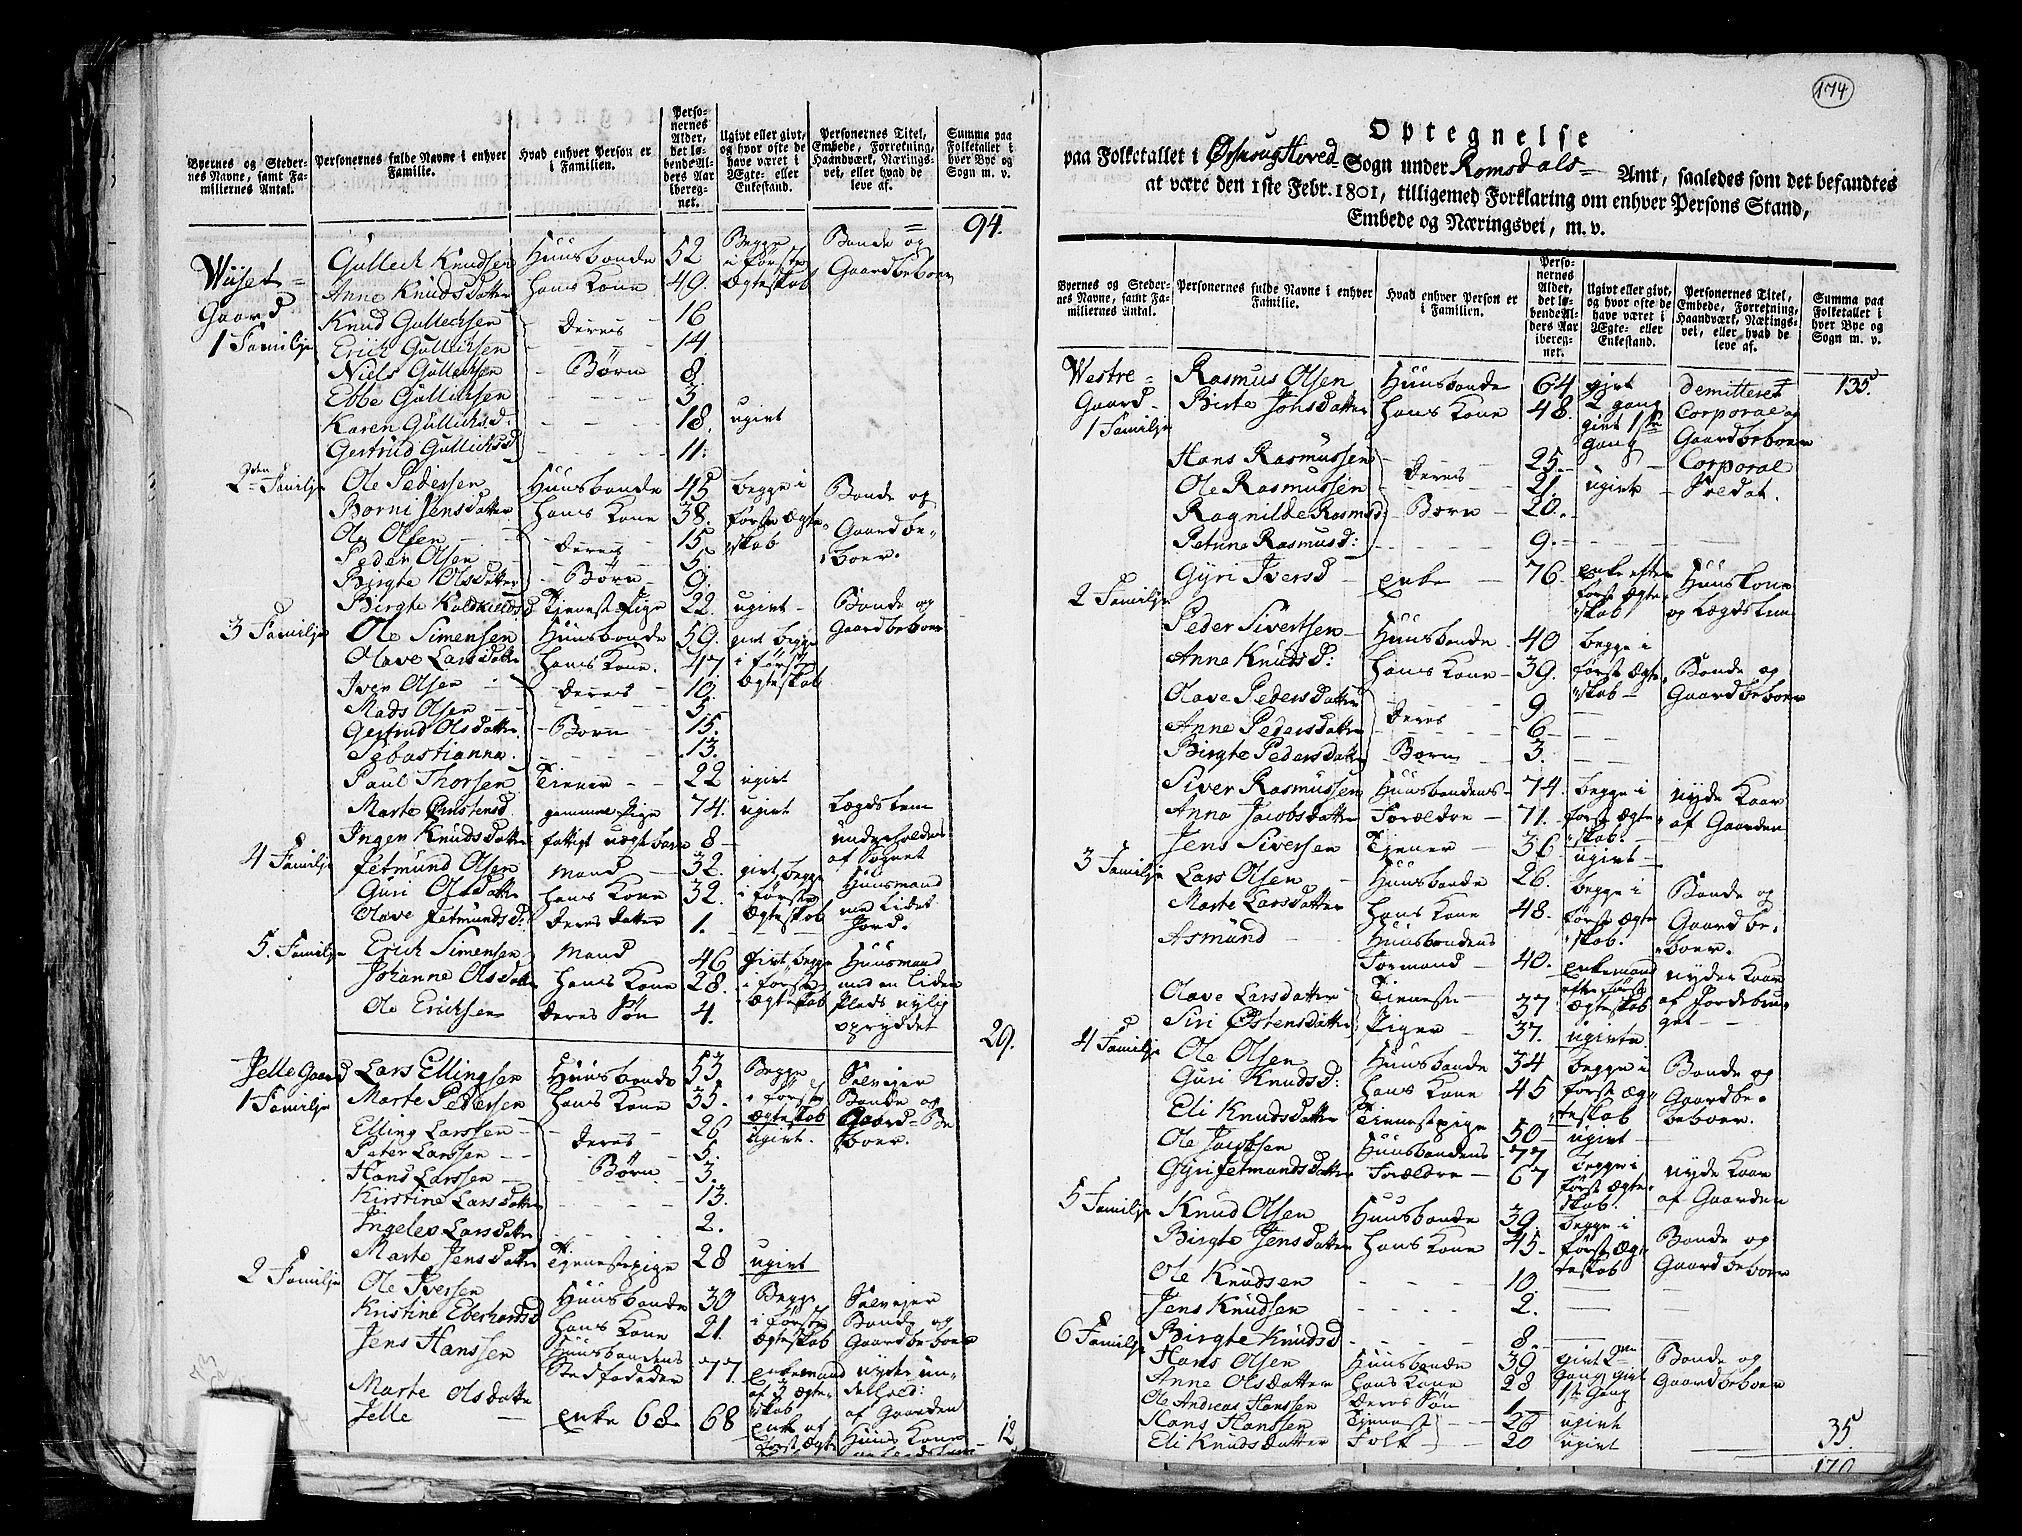 Byernes og Steder- nes Navne, samt Fa- miliernes Antal.
Personernes fulde Navne i enhver Familie.
Hvad enhver Person er i Familien.
Perso- nernes Alder, det lø- bende Al- ders Aar ibereg- net.
Ugivt eller givt, og hvor ofte de have været i Ægte- eller Enkestand.
Personernes Titel, Embede, Forretning, Haandværk, Nærings- vei, eller hvad de leve af.
Summa paa Folketallet i hver Bye og Sogn m. v.
94.
Wiiset Gaard
1 Familje
Gullech Knudsen Huusbonde 52 Begge i første Ægteskab Bonde og Gaardbeboer
Anne Knudsdatter hans Kone 49.
Knud Gullechsen Deres 16
Erich Gullichsen 14
Niels Gullechsen Børn 8.
Ebbe Gullichsen 3.
Karen Gullichsd: 18. ugivt
Gertrud Gullichsd 11.
2den Familje Ole Pedersen Huusbonde 45 begge i første Ægteskab Bonde og Gaardbeboer.
Borni Jensdatter hans Kone 38.
Ole Olsen Deres 15
Peder Olsen 5.
Birgte Olsdatter Børn 9.
Birgte Koldkieldsd Tienest Pige 22. ugivt Bonde og Gaardbeboer
3 Familje Ole Simensen Huusbonde 59. givt begge i første Ægteskab
Olave Larsdatter hans Kone. 47.
Iver Olsen Deres 10.
Mads Olsen 5.
Gertrud Olsdatter Born 15.
Sebastianna. 13.
Paul Thorsen Tiener 22 ugivt
Marte Christensd gammel Pige 74. ugivt Lægdslem
Ingen Knudsdatter fattigt 8 underholdes af Sognet
4 Familje Jetmund Olsen Mand 32. givt begge i første Ægteskab Huusmand med lidet Jord.
Guri Olsdatter hans Kone 32.
Olave Jetmundsd: Deres Datter 1.
5. Familje Erich Simensen Mand 46 givt begge i første Ægteskab Huusmand med en liden Plads nylig opryddet
Johanne Olsdatter hans Kone 28.
Ole Erichsen Deres Søn 4.
29.
Jelle Gaard
1 Familje Lars Ellingsen Huusbonde 53 Begge i første Ægteskab Selvejer Bonde og Gaard=Beboer.
Marte Pedersen hans Kone 35.
Elling Larssen Deres 26 ugivt.
Peter Larssen 5.
Hans Larssen Børn 3.
Kirstine Larsdatter 13.
Ingelev Larsdatter 2.
Marte Jensdatter Tienestepige 28 ugivt
2 Familje Ole Iversen Huusbonde 30 Begge i første Ægteskab Selvejer Bonde og Gaardbeboer
Kristine Eberhardsd hans Kone 21.
Jens Hanssen Huusbondens Stedfadeder 77. Enkemand af 3 Ægteskab nyder underhold: af Gaarden
Marte Olsdatter Jelle Enke 68 68 Enke af første Ægte Huus Kone
12
174
Optegnelse
paa Folketallet i Ørskoug Hoved= Sogn under Romsdals= Amt, saaledes som det befandtes
at være den 1ste Febr. 1801, tilligemed Forklaring om enhver Persons Stand,
Embede og Næringsvei, m. v.
Byernes og Steder- nes Navne, samt Fa- miliernes Antal.
Personernes fulde Navne i enhver Familie.
Hvad enhver Person er i Familien.
Perso- nernes Alder, det lø- bende Al- ders Aar ibereg- net.
Ugivt eller givt, og hvor ofte de have været i Ægte- eller Enkestand.
Personernes Titel, Embede, Forretning, Haandværk, Nærings- vei, eller hvad de leve af.
Summa paa Folketallet i hver Bye og Sogn m. v.
135.
Westre= Gaard
1 Familje Rasmus Olsen Huusbonde 64 givt 2 gang Demitteret Corporal og Gaardbeboer
Birte Johsdatter hans Kone 48. givt 1ste gang
Hans Rasmussen Deres 25. Corporal
Ole Rasmussen 21. ugivt Soldat.
Ragnilde Rasmusd: Børn 20.
Petrine Rasmusd: 9.
Gyri Iversd Enke 76. Enke efter først Ægteskab Huuskone og Lægdslem
2 Familje Peder Sivertsen Huusbonde 40 begge i først Ægteskab Bonde og Gaardbeboer
Anne Knudsd: hans Kone 39.
Olave Pedersdatter Deres 9.
Anne Pedersdatter 6.
Birgte Pedersdatter Børn 3.
Siver Rasmussen Huusbondens 74. begge i først Ægteskab. nyde Kaar af Gaarden
Anna Jacobsdatter Forældre 71.
Jens Siversen Tiener 36 ugivt
3 Familje Lars Olsen Huusbonde 26. begge i først Ægteskab. Bonde og Gaardbeboer.
Marte Larsdatter hans Kone 48.
Asmund Huusbondens Formand 40. Enkemand efter først Ægteskab nyder Kaar af Jordebruget
Olave Larsdatter Tieneste 37
Siri Østensdatter Piger 37. ugivte
4 Familje Ole Olsen Huusbonde 34 begge i først Ægteskab Bonde og Gaardbebeboer.
Guri Knudsd: hans Kone 45
Eli Knudsdatter Tienestepige 50 ugivt
Ole Jacobsen Huusbondens 77 begge i først Ægteskab. nyde Kaar af Gaarden
Gyri Jetmundsdatter Forældre 67
5 Familje Knud Olsen Huusbonde 39. begge i først Ægteskab Bonde og Gaardbeboer
Birgte Jensdatter hans Kone 45.
Ole Knudsen 10
Jens Knudsen 2.
Birgte Knudsd 8.
6 Familje Hans Olsen Huusbonde 39 givt 2den Gang, givt 1ste Gang Bonde og Gaardbeboer
Anne Olsdatter hans Kone 28
Ole Andreas Hanssen Deres Søn 1
Hans Hanssen Tienest 26 ugivt
Eli Knudsdatter Folk 20 ugivt
35.
170